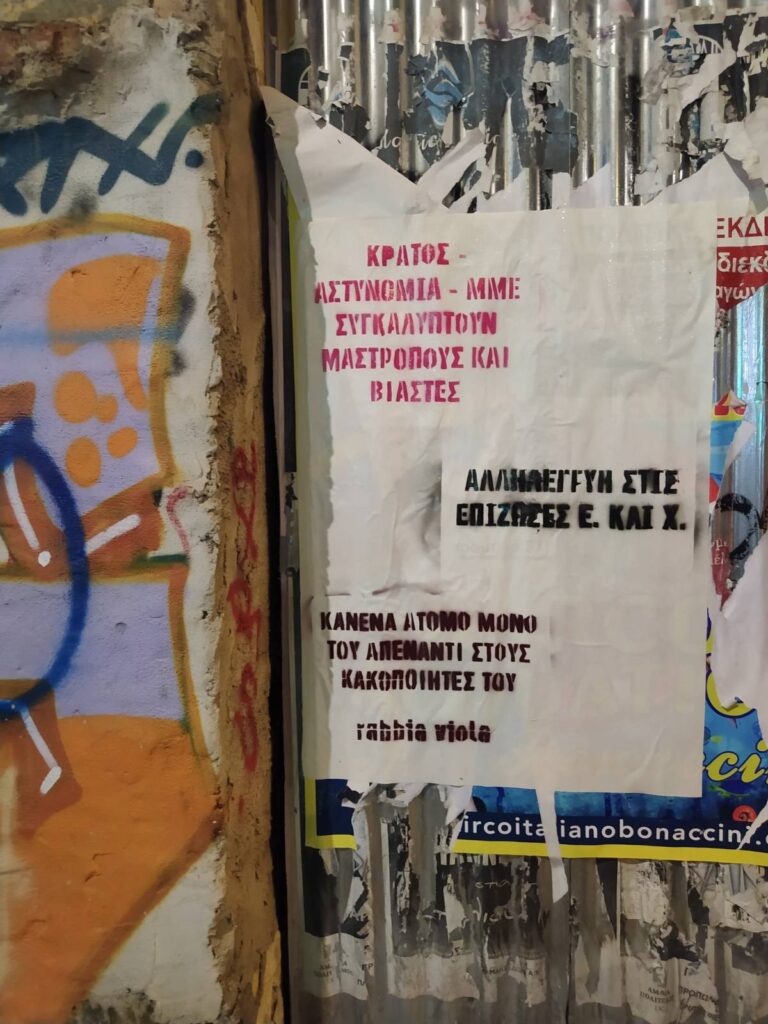 ΕΚΔΙ
διεκδ
αγών
ΚΡΑΤΟΣ -
ΑΣΤΥΝΟΜΙΑ - ΜΜΕ
ΣΥΓΚΑΛΥΠΤΟΥΝ
ΜΑΣΤΡΟΠΟΥΣ ΚΑΙ
ΒΙΑΣΤΕΣ
ΑΛΛΗΛΕΓΓΥΗ ΣΤΙΣ
ΕΠΙΖΩΣΕΣ Ε. ΚΑΙ Χ.
ΚΑΝΕΝΑ ΑΤΟΜΟ ΜΟΝΟ
ΤΟΥ ΑΠΕΝΑΝΤΙ ΣΤΟΥΣ
ΚΑΚΟΠΟΙΗΤΕΣ ΤΟΥ
rabbia viola
ci
ircoitalianobonaccini.